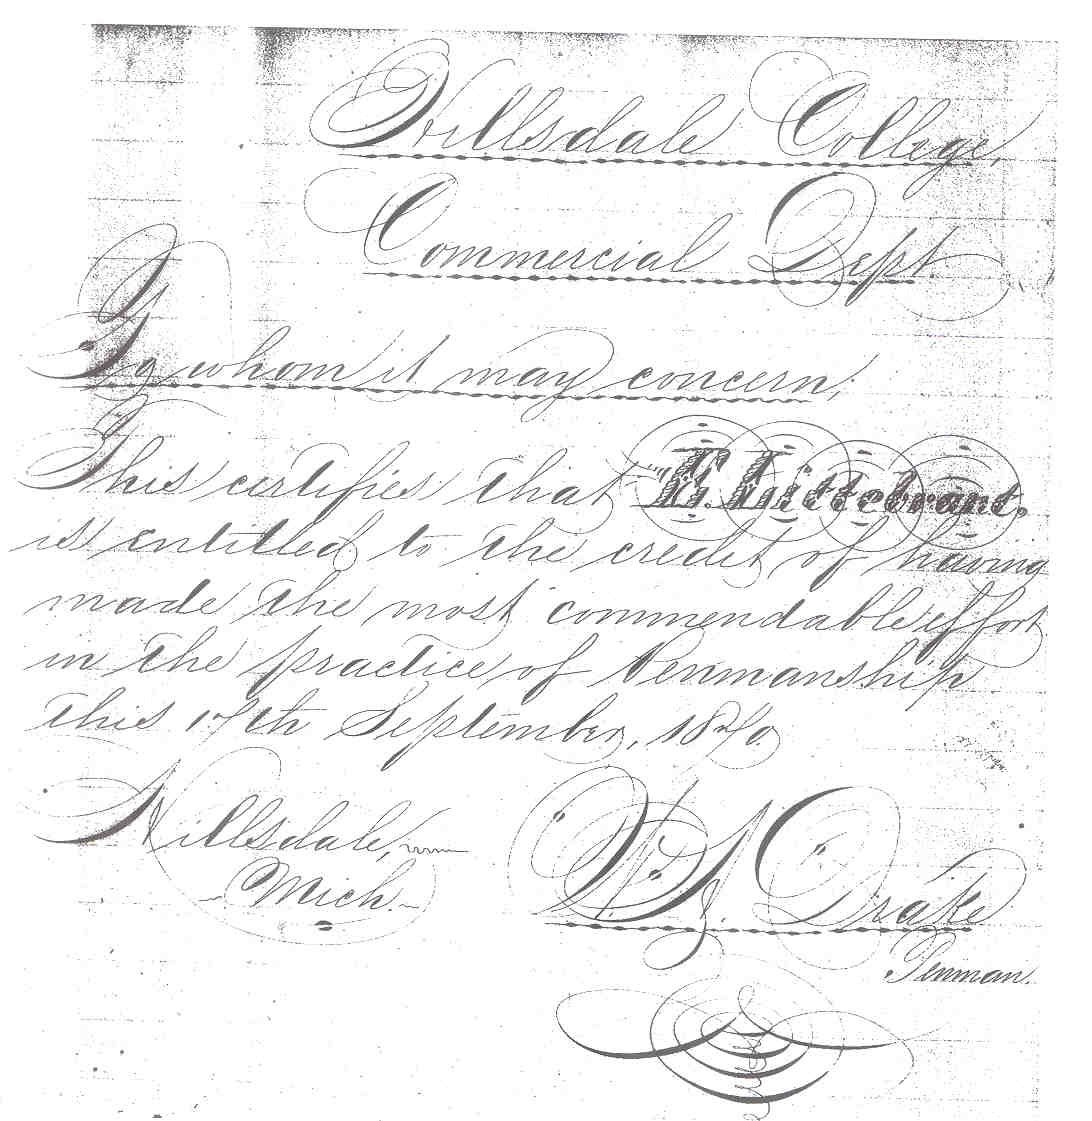 Hillsdale College,
Commercial Dept.
To whom it may concern,
This certifies that E. Littebrant.
is entitled to the credit of having
made the most commendable effort
in the practice of Penmanship
this 17th September, 1870.
Hillsdale,
Mich.
W. J. Drake
Penman.